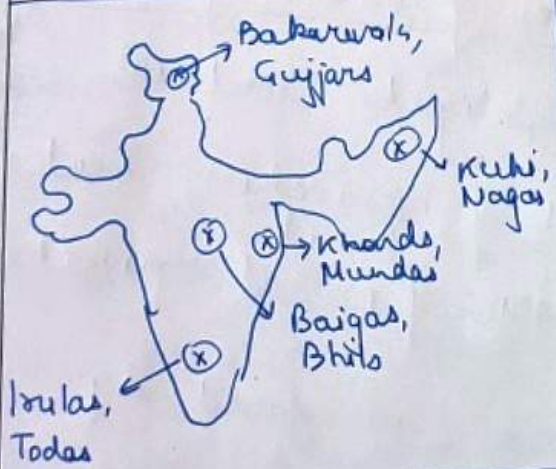 Bakarwals,
Gujjars
Kuki,
Nagas
Khonds,
Mundas
Baigas,
Bhils
Irulas,
Todas